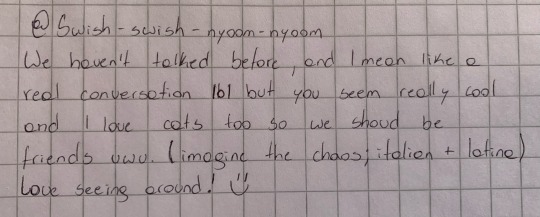 @ Swish-swish-nyoom-nyoom
We haven't talked before, and I mean like a
real conversation lbl but you seem really cool
and I love cats too so we shoud be
friends uwu. (imagine the chaos; italian + latine)
Love seeing around! ü